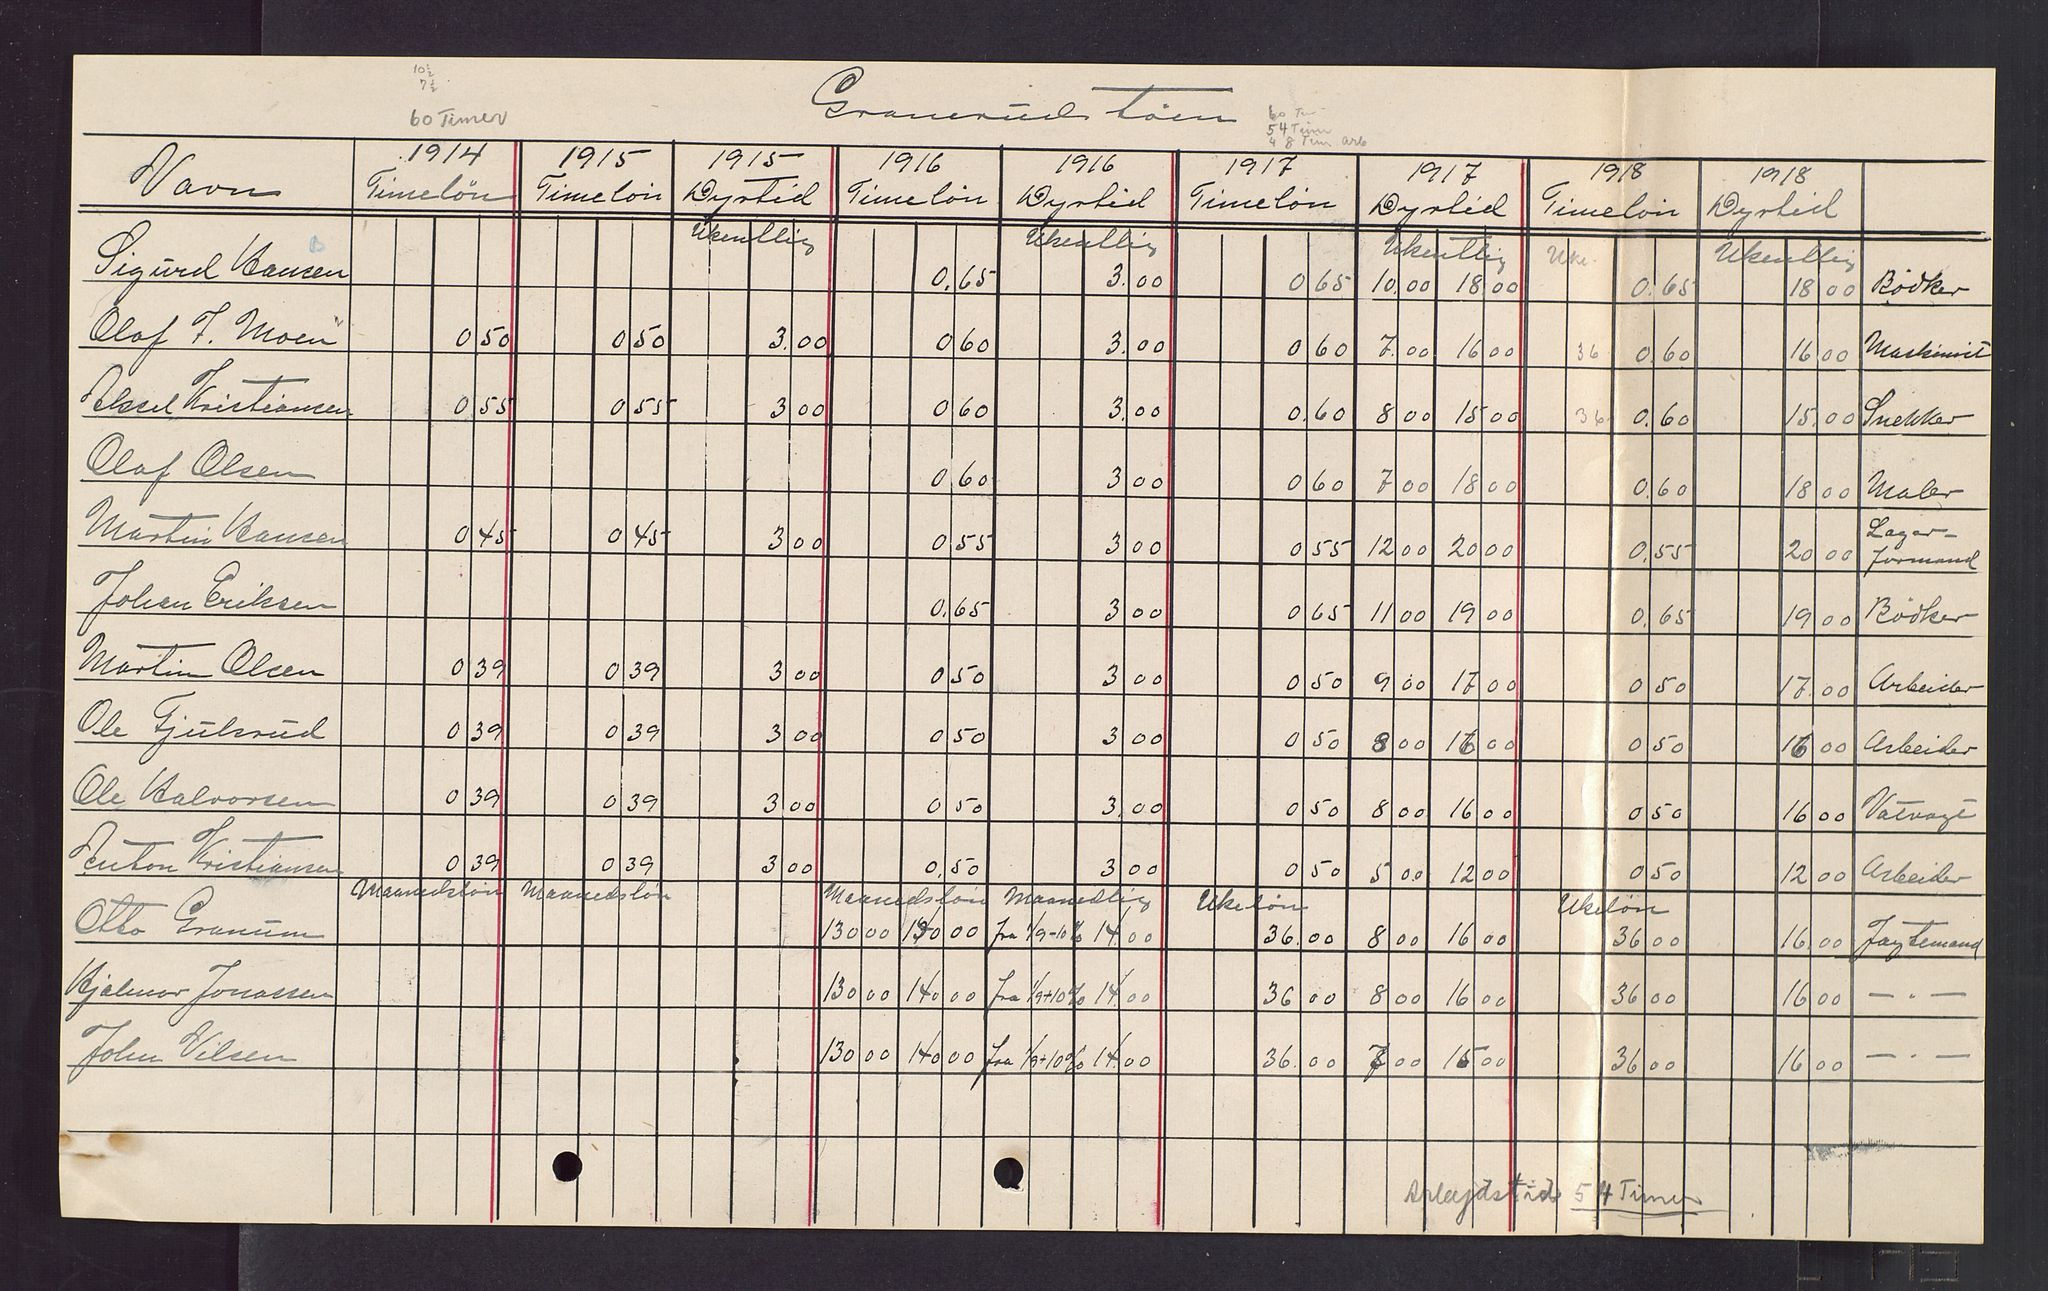 10½
7½
60 Timer
Granerudstøen
60 Ti
54 Tim
48 Tim arb
Navn 1914 Timeløn 1915 Timeløn 1915 Dyrtid 1916 Timeløn 1916 Dyrtid 1917 Timeløn 1917 Dyrtid 1918 Timeløn 1918 Dyrtid
Ukentlig Ukentlig Ukentlig Uke. Ukentlig
Sigurd Hansen B 0.65 3.00 0 65 10.00 18.00 0.65 18 00 Bödker
Olaf F. Moen 0 50 0 50 3.00 0 60 3.00 0 60 7.00 16 00 36 0.60 16 00 Maskinist
Aksel Kristiansen 0 55 0 55 3 00 0 60 3.00 0.60 8 00 15 00 36. 0.60 15.00 Snekker
Olaf Olsen 0.60 3 00 0 60 7 00 18 00 0.60 18 00 Maler
Martin Hansen 0 45 0 45 3 00 0 55 3 00 0 55 12 00 20.00 0.55 20 00 Lager-
formand
Johan Eriksen 0.65 3 00 0 65 11 00 19 00 0.65 19 00 Bödker
Martin Olsen 0 39 0 39 3 00 0 50 3 00 0 50 9 00 17 00 0 50 17.00 Arbeider
Ole Fjulsrud 0 39 0 39 3 00 0 50 3 00 0 50 8 00 16 00 0 50 16 00 Arbeider
Ole Halvorsen 0 39 0 39 3 00 0 50 3.00 0 50 8 00 16 00 0 50 16 00 Vatvagt
Anton Kristiansen 0 39 0 39 3 00 0.50 3 00 0 50 5 00 12 00 0 50 12 00 Arbeider
Maanedsløn Maanedsløn Maanedsløn Maanedlig Ukeløn Ukeløn
Otto Granum 130 00 140 00 fra 1/9-10% 14.00 36.00 8 00 16 00 36 00 16.00
Hjalmar Jonassen 130 00 140 00 fra 1/9+10% 14 00 36 00 8 00 16 00 36 00 16 00 — . —
John Nilsen 130 00 140 00 fra 1/9+10% 14.00 36.00 7 00 15 00 36 00 16 00 — . —
Arbejdstid 54 Timer